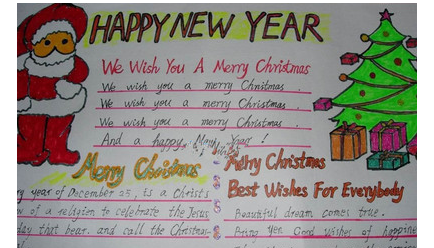 HAPPY NEW YEAR
We Wish You A Merry Christmas
We wish you a merry Christmas.
We wish you a merry Christmas.
We wish you a merry Christmas.
And a happy New Year!
Merry Christmas
year of December 25, is a Christ
of a religion to celebrate the Jesus
day that bear. and call the Christmas
Merry Christmas
Best Wishes For Everybody
Beautiful dream comes true.
Bring you Good wishes of happine